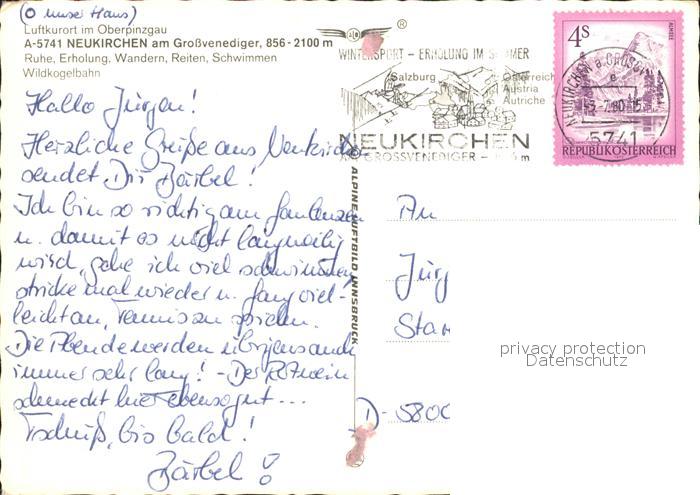 (O unser Haus)
Luftkurort im Oberpinzgau
A-5741 NEUKIRCHEN am Großvenediger, 856-2100 m
Ruhe, Erholung, Wandern, Reiten, Schwimmen
Wildkogelbahn
®
WINTERSPORT - ERHOLUNG IM SOMMER
Salzburg
Österreich
Austria
Autriche
NEUKIRCHEN
AM GROSSVENEDIGER - m
4S
NEUKIRCHEN a. GROSSV
-3.-7.80-15
5741
REPUBLIK ÖSTERREICH
ALPINE LUFTBILD INNSBRUCK
Hallo Jürgen!
Herzliche Grüße aus Neukirchen
sendet Dir Bärbel!
Ich bin so richtig am faulenzen
u. damit es nicht langweilig
wird, gehe ich viel schwimmen,
stricke mal wieder u. fang viel-
leicht an, Tennis zu spielen.
Die Abende werden übrigens auch
immer sehr lang! - Der Rotwein
schmeckt hier ebenso gut...
Tschüß, bis bald!
Bärbel!
An
Jürg
Star
D-5800
privacy protection
Datenschutz